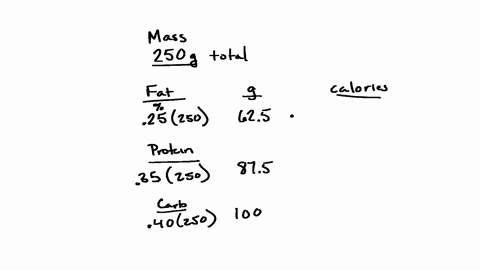 Mass
250g total
Fat g calories
%
.25(250) 62.5 .
Protein
.35(250) 87.5
Carb
.40(250) 100